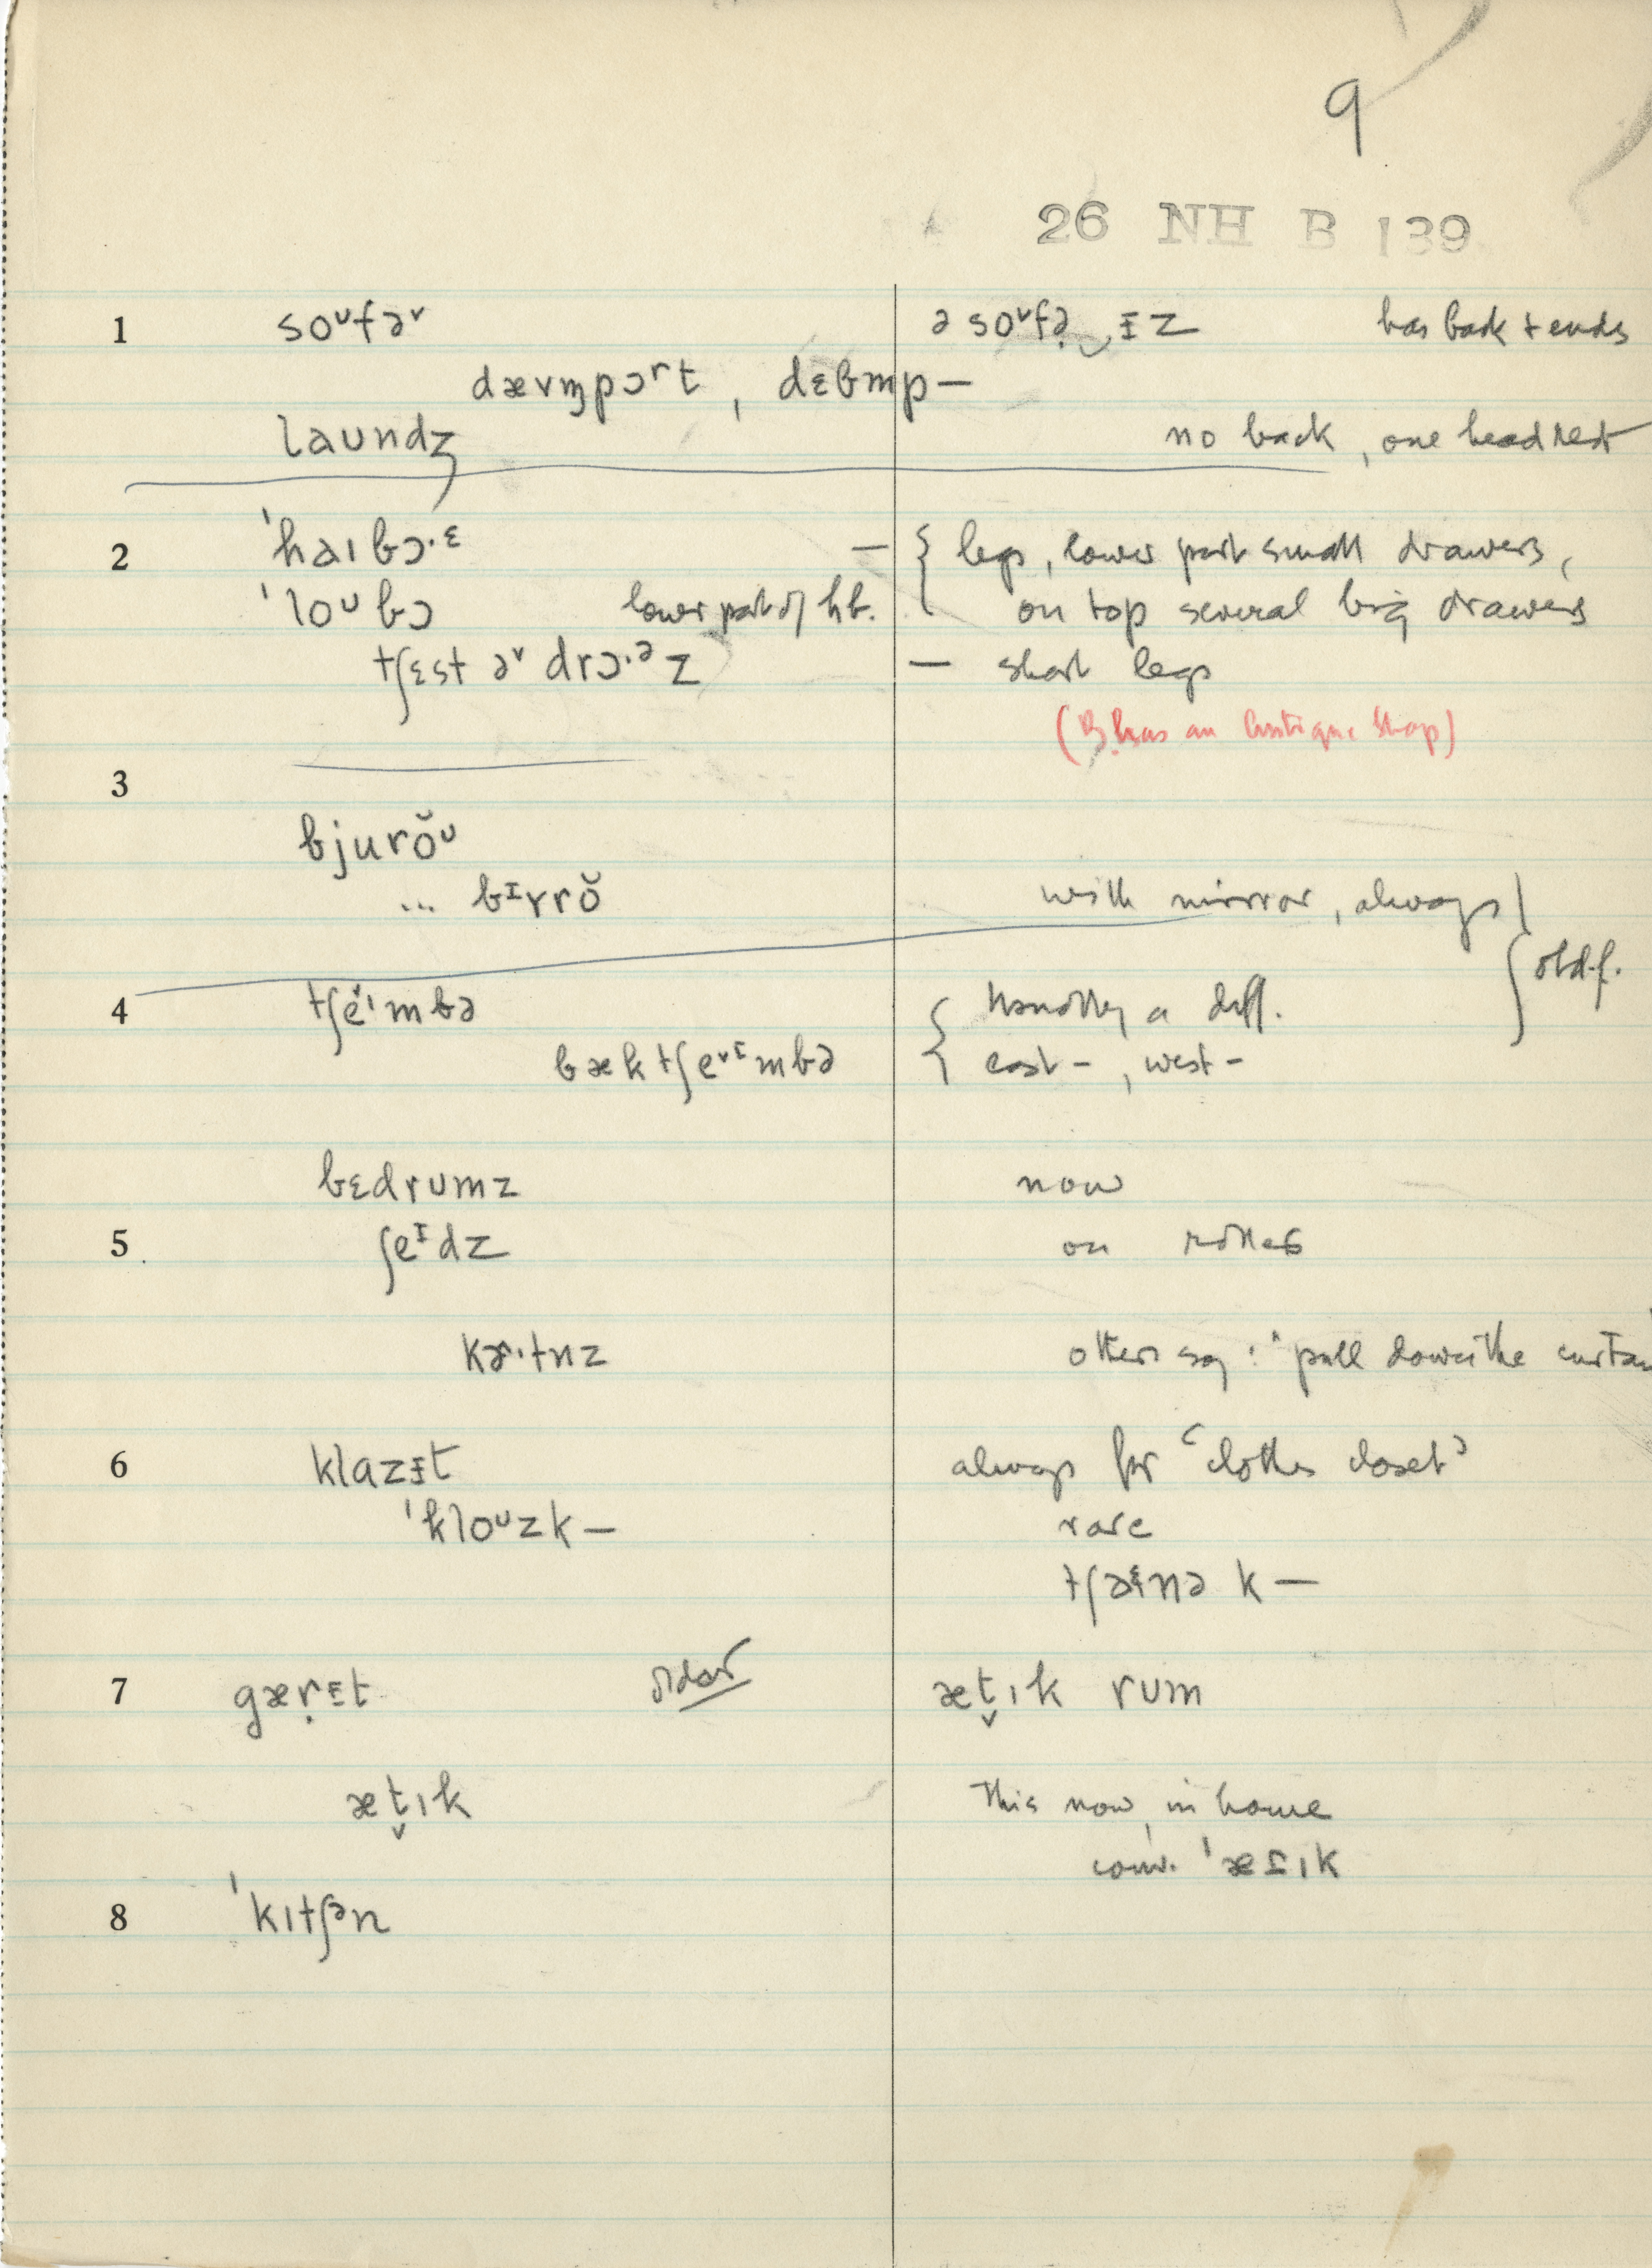 9
26 NH B 139
1 soᶷfəᵛ ə soᶷfə̣‿ɪz has back + ends
dævm̩pɔʳt, dɛbmp—
laundʒ no back, one headrest
2 ˈhaɪbɔ·ᵋ — { legs, lower part small drawers,
ˈloᶷbɔ lower part of hb. on top several big drawers
tʃɛst əᵛ drɔ·ᵊz — short legs
(B. has an antique shop)
3
bjurŏᶷ
... bɪrrŏ with mirror, always
old-f.
4 tʃeˈmbə { a diff.
bæk tʃeᵛᶦmbə east –, west –
bɛdrumz now
5 ʃeᶦdz on rollers
kɚ·tnz others say: "pull down the
6 klazɪt always for 'clothes closet'
ˈkloᶷzk— rare
tʃaɪnə k—
7 gæṛɪt older æt̬ɪk rum
æt̬ɪk This now in house
conv. ˈæɾɪk
8 ˈkɪtʃᵊn